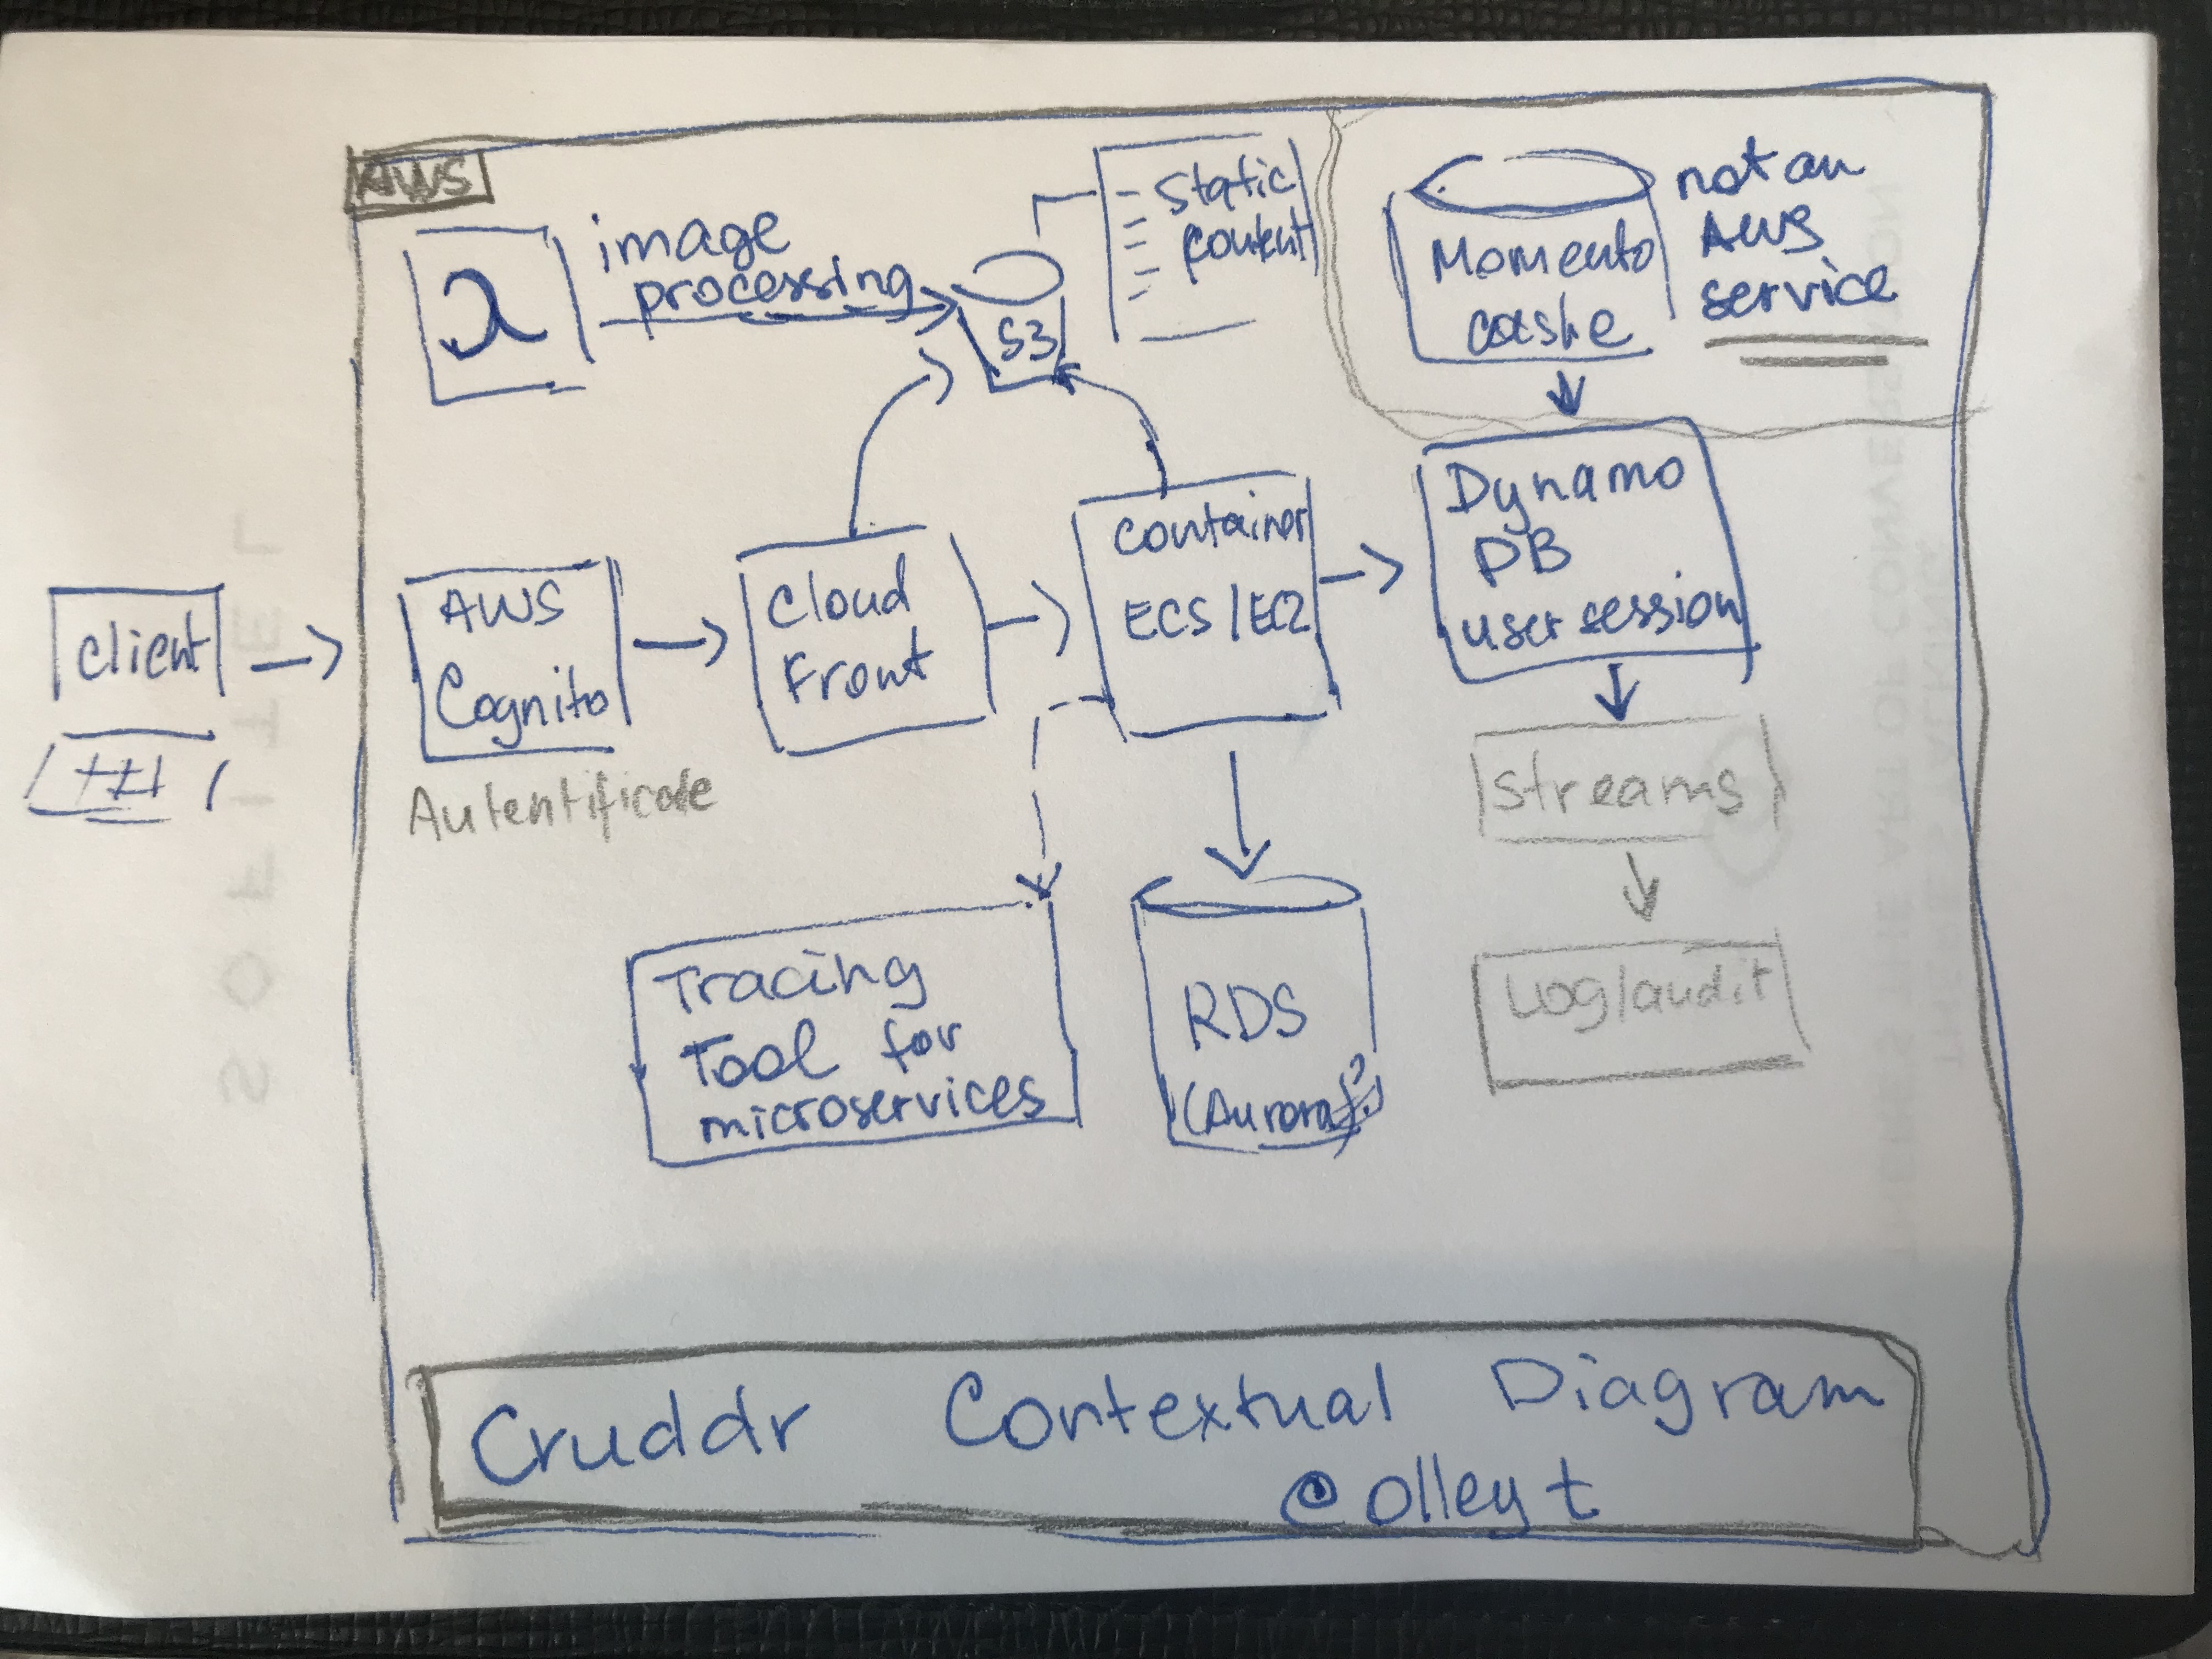 AWS
λ
image
processing
S3
static
content
Momento
cashe
not an
AWS
service
client
AWS
Cognito
Autentificate
Cloud
Front
container
ECS/EC2
Dynamo
DB
user session
streams
Log/audit
Tracing
Tool for
microservices
RDS
(Aurora)?
Cruddr Contextual Diagram
@olleyt
SOFITEL